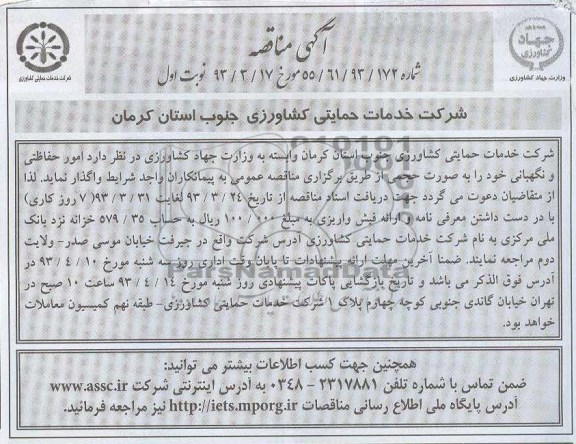 آگهی مناقصه
شماره ۵۵/۶۱/۹۳/۱۷۲ مورخ ۹۳/۳/۱۷ نوبت اول
شرکت خدمات حمایتی کشاورزی
وزارت جهاد کشاورزی
جهاد کشاورزی
شرکت خدمات حمایتی کشاورزی جنوب استان کرمان
شرکت خدمات حمایتی کشاورزی جنوب استان کرمان وابسته به وزارت جهاد کشاورزی در نظر دارد امور حفاظتی
و نگهبانی خود را به صورت حجمی از طریق برگزاری مناقصه عمومی به پیمانکاران واجد شرایط واگذار نماید. لذا
از متقاضیان دعوت می گردد جهت دریافت اسناد مناقصه از تاریخ ۹۳/۳/۲۴ لغایت ۹۳/۳/۳۱ (۷ روز کاری)
با در دست داشتن معرفی نامه و ارائه فیش واریزی به مبلغ ۱۰۰/۰۰۰ ریال به حساب ۵۷۹/۳۵ خزانه نزد بانک
ملی مرکزی به نام شرکت خدمات حمایتی کشاورزی آدرس شرکت واقع در جیرفت خیابان موسی صدر- ولایت
دوم مراجعه نمایند. ضمنا آخرین مهلت ارائه پیشنهادات تا پایان وقت اداری روز سه شنبه مورخ ۹۳/۴/۱۰ در
آدرس فوق الذکر می باشد و تاریخ بازگشایی پاکات پیشنهادی روز شنبه مورخ ۹۳/۴/۱۴ ساعت ۱۰ صبح در
تهران خیابان گاندی جنوبی کوچه چهارم پلاک ۱ شرکت خدمات حمایتی کشاورزی- طبقه نهم کمیسیون معاملات
خواهد بود.
ParsNamadData
همچنین جهت کسب اطلاعات بیشتر می توانید:
ضمن تماس با شماره تلفن ۲۳۱۷۸۸۱ - ۰۳۴۸ به آدرس اینترنتی شرکت www.assc.ir
آدرس پایگاه ملی اطلاع رسانی مناقصات http://iets.mporg.ir نیز مراجعه فرمائید.